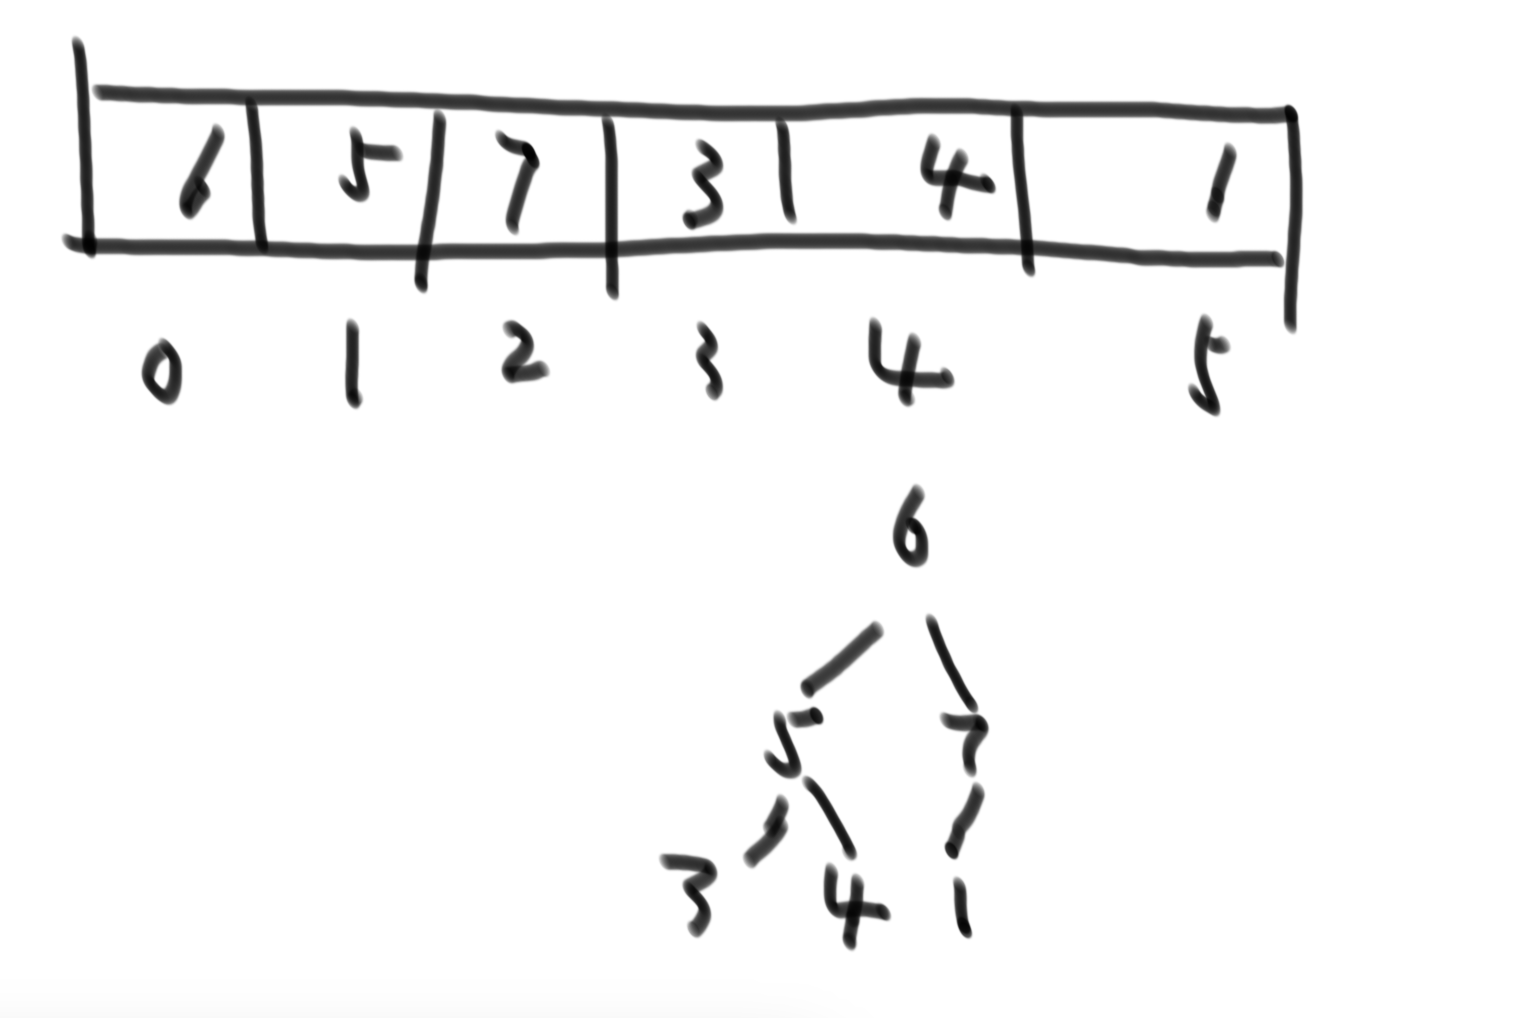 6 5 7 3 4 1
0 1 2 3 4 5
6
5 7
3 4 1